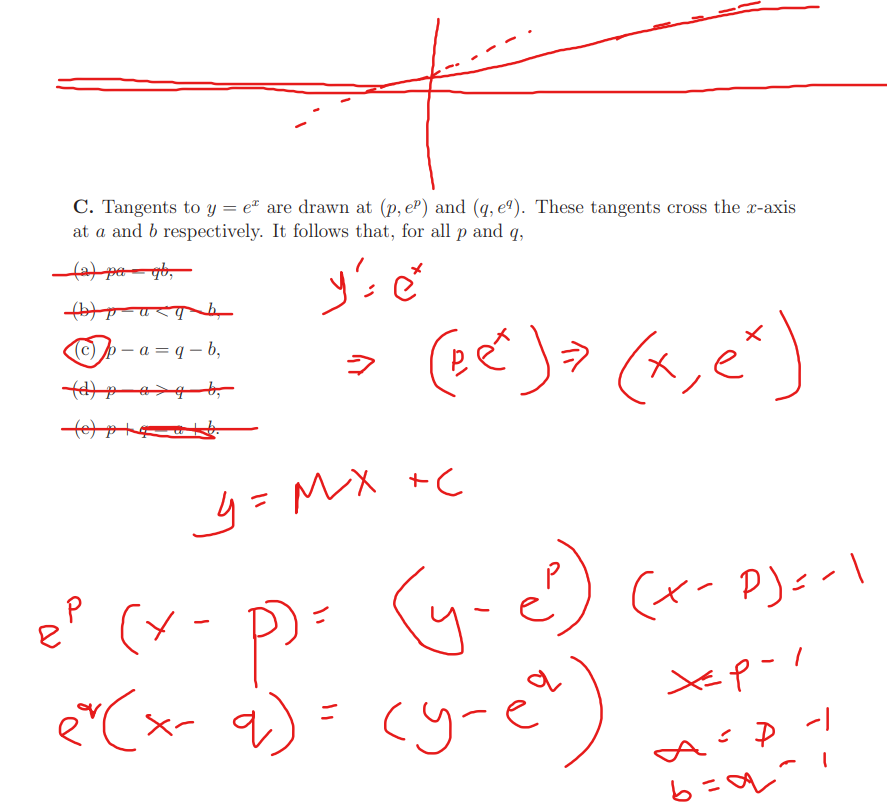 C. Tangents to y = eˣ are drawn at (p, eᵖ) and (q, e^q). These tangents cross the x-axis
at a and b respectively. It follows that, for all p and q,
(a) pa = qb,
(b) p − a < q − b,
(c) p − a = q − b,
(d) p − a > q − b,
(e) p + q = a + b.
y' = eˣ
⇒ (p, eˣ) ⇒ (x, eˣ)
y = mx + c
eᵖ (x - p) = (y - eᵖ)
(x - p) = -1
e^q (x - q) = (y - e^q)
x = p - 1
a = p - 1
b = q - 1